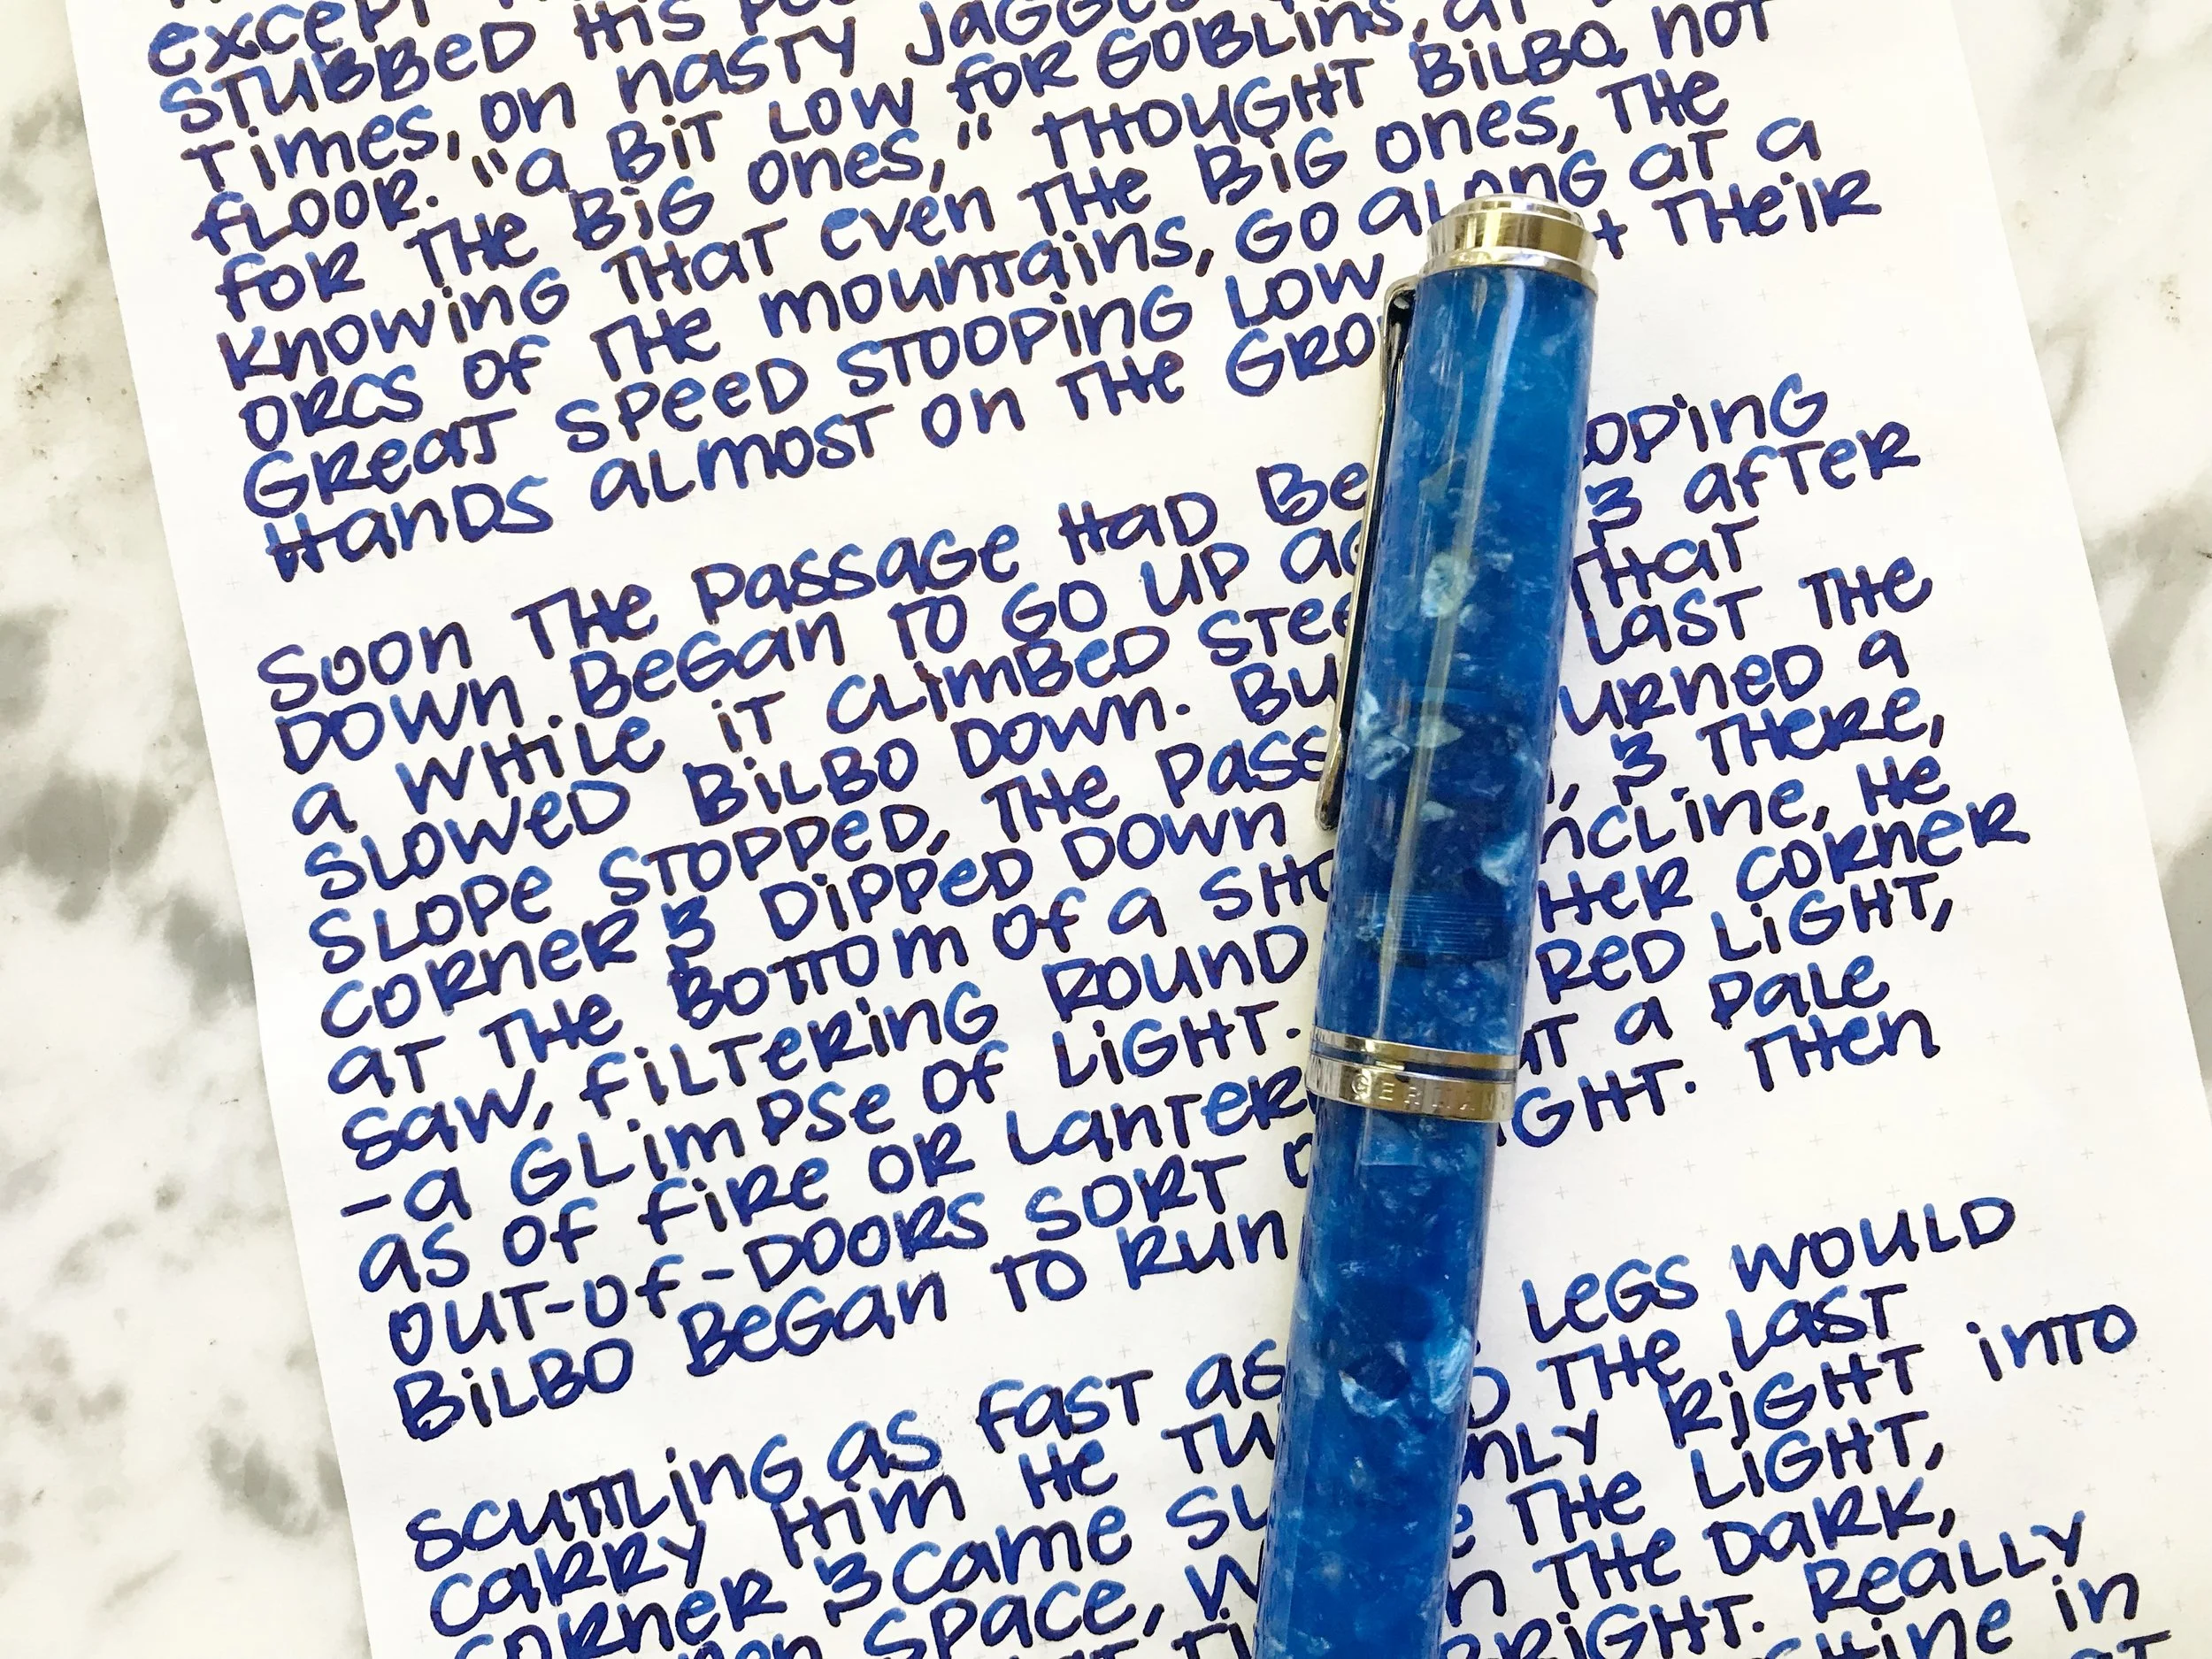 except
STUBBED HIS
Times, on nasty
fLOOR. "a BiT LOW fOR GOBLins, at
fOR THe BiG ones," THOUGHT BiLBO, not
Knowing THaT even THe BiG ones, THe
ORCS Of THe mountains, GO aLONG aT a
GReaT SPeeD STOOPinG LOW THeiR
Hands aLmost on THe
Soon THe Passage HaD OPinG
DOWN. BeGan TO GO UP & afTeR
a WHiLe iT CLimBeD THaT
SLOWeD BiLBO DOWN. LaST THe
SLOPe STOPPeD, THe URneD a
CORneR & DiPPeD DOWN & THeRe,
aT THe BOTTOm Of a nCLine, He
Saw, fiLTeRinG ROUND HeR CORneR
-a GLimPSe Of LiGHT. ReD LiGHT,
as Of fiRe OR a PaLe
OUT-Of-DOORS SORT THen
BiLBO BeGan TO Run
SCUTTLinG as fasT as LeGS WOULD
CaRRY Him He THe LaST
CORneR & Came RiGHT inTO
SPaCe, THe LiGHT,
THe DaRK,
BRiGHT. ReaLLY
in
GERMAN